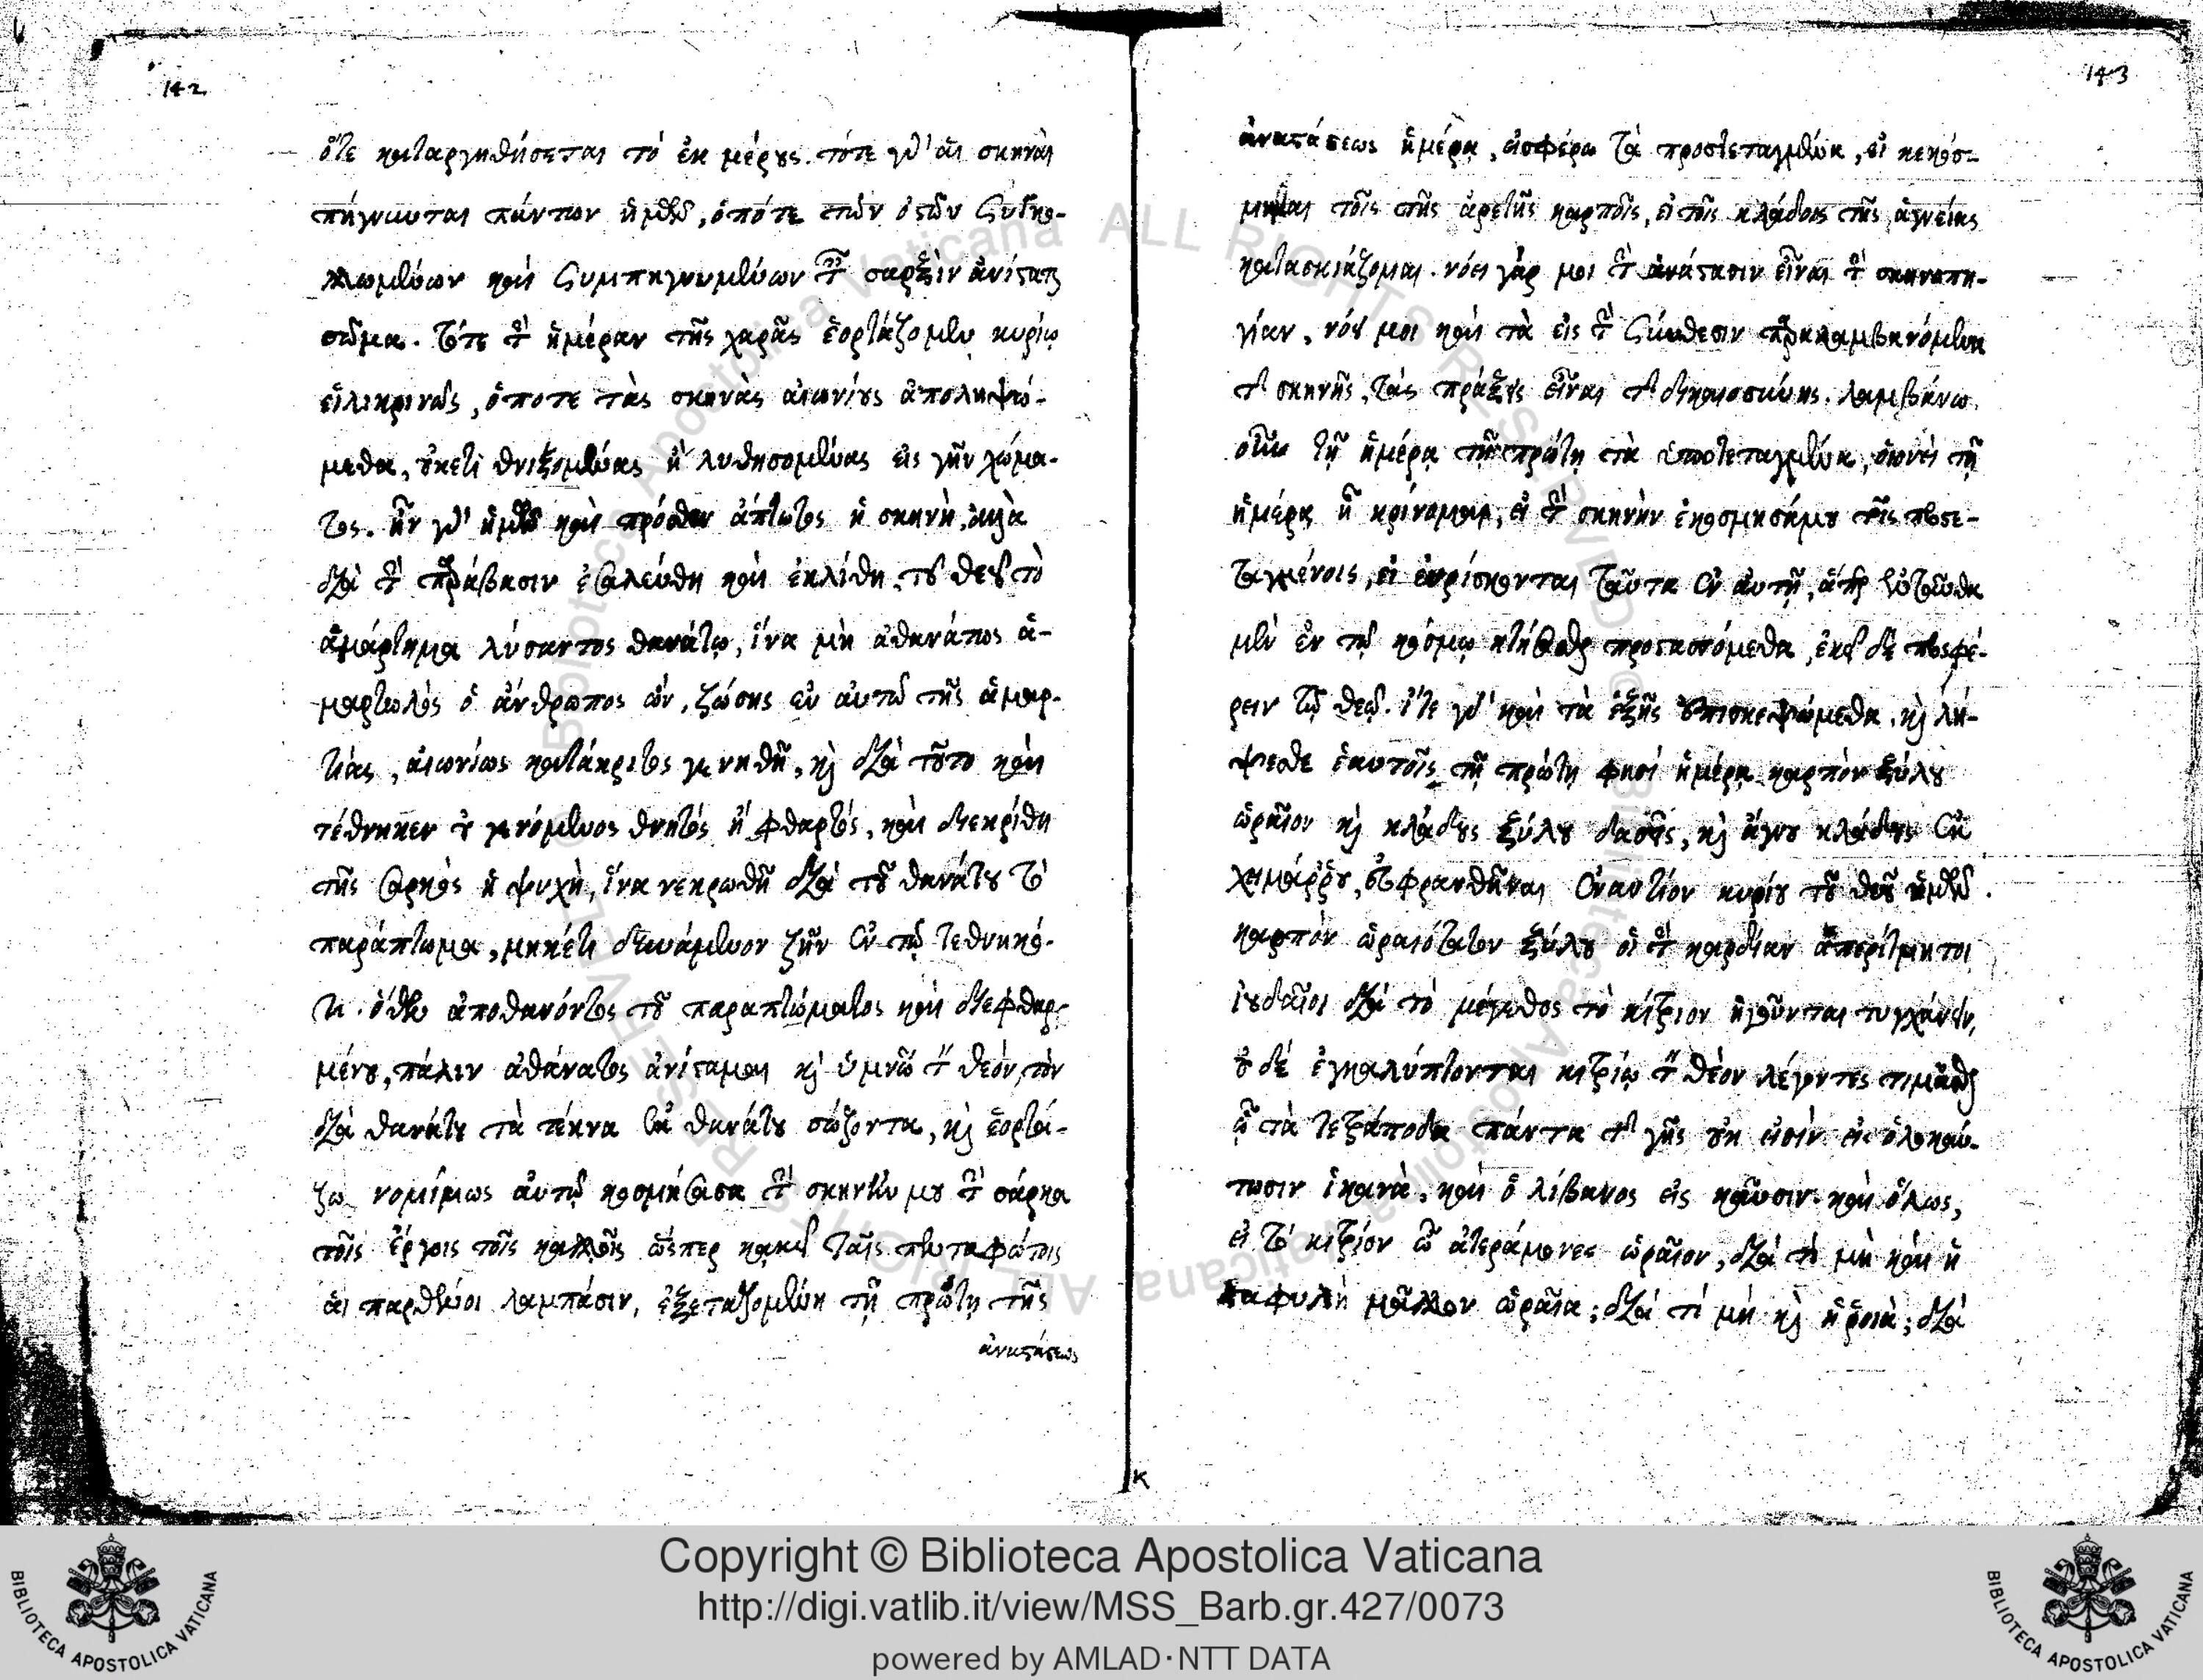 142
ὅτε καταργηθήσεται τὸ ἐκ μέρους. τότε γὰρ αἱ σκηναὶ
πήγνυνται πάντων ἡμῶν, ὁπότε τῶν ὀστῶν συγκο-
λλωμένων καὶ συμπηγνυμένων τὴν σαρξὶν ἀνίσταται
σῶμα. τότε τὴν ἡμέραν τῆς χαρᾶς ἑορτάζομεν κυρίῳ
εἱλικρινῶς, ὁπότε τὰς σκηνὰς αἰωνίους ἀποληψό-
μεθα, οὐκέτι θνιξομένας ἢ λυθησομένας εἰς γῆν χώμα-
τος. ἦν γὰρ ἡμῶν καὶ πρόσθεν ἄπτωτος ἡ σκηνὴ, ἀλλὰ
διὰ τὴν παράβασιν ἐσαλεύθη καὶ ἐκλίθη, τοῦ θεοῦ τὸ
ἁμάρτημα λύσαντος θανάτῳ, ἵνα μὴ ἀθανάτως ἁ-
μαρτωλὸς ὁ ἄνθρωπος ὢν, ζώσης ἐν αὐτῷ τῆς ἁμαρ-
τίας, αἰωνίως κατάκριτος γενηθῇ, καὶ διὰ τοῦτο καὶ
τέθνηκεν ὁ γενόμενος θνητός ἢ φθαρτός, καὶ διεκρίθη
τῆς σαρκὸς ἡ ψυχὴ, ἵνα νεκρωθῇ διὰ τοῦ θανάτου τὸ
παράπτωμα, μηκέτι δυνάμενον ζῆν ἐν τῷ τεθνηκό-
τι. ὅθεν ἀποθανόντος τοῦ παραπτώματος καὶ διεφθαρ-
μένου, πάλιν ἀθάνατος ἀνίσταμαι καὶ ὑμνῶ τὸν θεόν, τὸν
διὰ θανάτου τὰ τέκνα ἐκ θανάτου σώζοντα, καὶ ἑορτά-
ζω νομίμως αὐτῷ κοσμήσασα τὴν σκηνήν μου τὴν σάρκα
τοῖς ἔργοις τοῖς καλοῖς ὥσπερ κἀκεῖ ταῖς πενταφώτοις
αἱ παρθένοι λαμπάσιν, ἐξεταζομένη τῇ πρώτῃ τῆς
ἀναστάσεως
143
ἀναστάσεως ἡμέρᾳ, εἰσφέρω τὰ προστεταγμένα, εἰ κεκόσ-
μημαι τοῖς τῆς ἀρετῆς καρποῖς, εἰ τοῖς κλάδοις τῆς ἁγνείας
κατασκιάζομαι. νόει γάρ μοι τὴν ἀνάστασιν εἶναι τὴν σκηνοπη-
γίαν, νόει μοι καὶ τὰ εἰς τὴν σύνθεσιν παραλαμβανόμενα
τῆς σκηνῆς, τὰς πράξεις εἶναι τῆς δικαιοσύνης. λαμβάνω
οὖν τῇ ἡμέρᾳ τῇ πρώτῃ τὰ ὑποτεταγμένα, οἱονεὶ τῇ
ἡμέρᾳ ᾗ κρίνομαι, εἰ τὴν σκηνὴν ἐκόσμησά μου τοῖς προστε-
ταγμένοις, εἰ εὑρίσκονται ταῦτα ἐν αὐτῇ, ἅπερ ἐνταῦθα
μὲν ἐν τῷ κόσμῳ κτήσασθαι προστασσόμεθα, ἐκεῖ δὲ προσφέ-
ρειν τῷ θεῷ. ἴτε γὰρ καὶ τὰ ἑξῆς ἐπισκεψώμεθα. καὶ λή-
ψεσθε ἑαυτοῖς τῇ πρώτῃ φησὶ ἡμέρᾳ καρπὸν ξύλου
ὡραῖον καὶ κλάδους ξύλου δασεῖς, καὶ ἄγνου κλάδους ἐκ
χειμάῤῥου, εὐφρανθῆναι ἐναντίον κυρίου τοῦ θεοῦ ὑμῶν.
καρπὸν ὡραιότατον ξύλου οἱ τὴν καρδίαν ἀπερίτμητοι
ἰουδαῖοι διὰ τὸ μέγεθος τὸ κίτριον ἡγοῦνται τυγχάνειν,
οὐδὲ ἐγκαλύπτονται κιτρίῳ τὸν θεὸν λέγοντες τιμᾶσθαι
ᾧ τὰ τετράποδα πάντα τῆς γῆς οὐκ εἰσὶν εἰς ὁλοκάυ-
τωσιν ἱκανὰ, καὶ ὁ λίβανος εἰς καῦσιν. καὶ ὅλως,
εἰ τὸ κίτριον ὦ ἀτεράμονες ὡραῖον, διὰ τί μὴ καὶ ἡ
σταφυλὴ μᾶλλον ὡραῖα; διὰ τί μὴ καὶ ἡ ῥοιά; διὰ
K
Copyright © Biblioteca Apostolica Vaticana
http://digi.vatlib.it/view/MSS_Barb.gr.427/0073
powered by AMLAD·NTT DATA
BIBLIOTECA APOSTOLICA VATICANA
BIBLIOTECA APOSTOLICA VATICANA